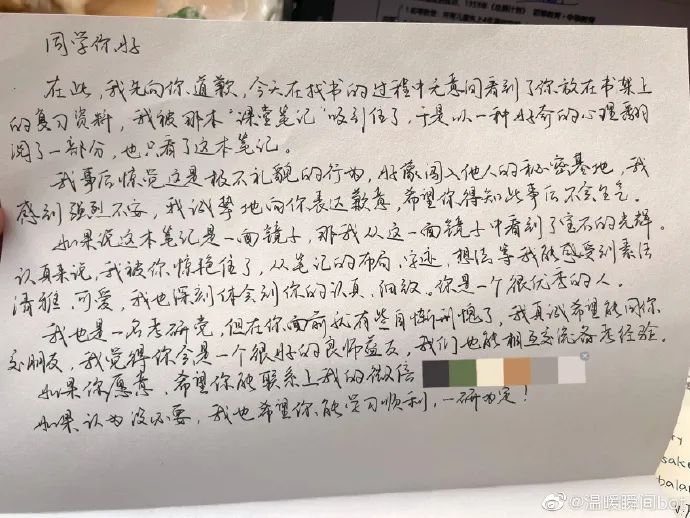 同学你好
在此，我先向你道歉，今天在找书的过程中无意间看到了你放在书架上
的复习资料，我被那本“课堂笔记”吸引住了，于是以一种好奇的心理翻
阅了一部分，也只看了这本笔记。
我事后惊觉这是极不礼貌的行为，好像闯入他人的秘密基地，我
感到强烈不安，我诚挚地向你表达歉意，希望你得知此事后不会生气。
如果说这本笔记是一面镜子，那我从这一面镜子中看到了宝石的光辉。
认真来说，我被你惊艳住了，从笔记的布局，字迹，想法等我能感受到素洁
清雅，可爱，我也深刻体会到你的认真，细致。你是一个很优秀的人。
我也是一名考研党，但在你面前就有些自惭形愧了，我真诚希望能同你
交朋友，我觉得你会是一个很好的良师益友，我们也能相互交流备考经验。
如果你愿意，希望你能联系上我的微信
如果认为没必要，我也希望你能学习顺利，一研为定！
sake
balan
@温暖瞬间bot